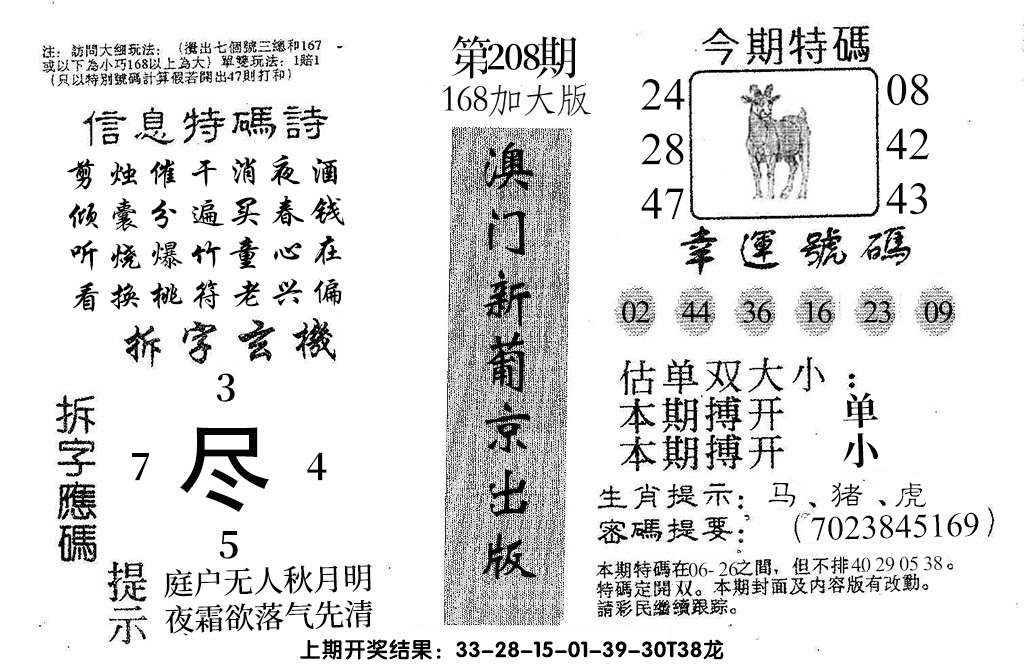 注：訪問大细玩法：（攪出七個號三總和167
或以下為小巧168以上為大）單雙玩法：1賠1
（只以特別號碼計算假若開出47則打和）
信息特碼詩
剪烛催干消夜酒
倾囊分遍买春钱
听烧爆竹童心在
看换桃符老兴偏
拆字玄機
3
7 尽 4
5
拆字應碼
提示
庭户无人秋月明
夜霜欲落气先清
第208期
168加大版
澳门新葡京出版
今期特碼
24 08
28 42
47 43
幸運號碼
02 44 36 16 23 09
估单双大小：
本期搏开 单
本期搏开 小
生肖提示：马、猪、虎
密碼提要：（7023845169）
本期特碼在06-26之間，但不排40 29 05 38。
特碼定開双。本期封面及内容版有改動。
請彩民繼續跟踪。
上期开奖结果：33-28-15-01-39-30T38龙